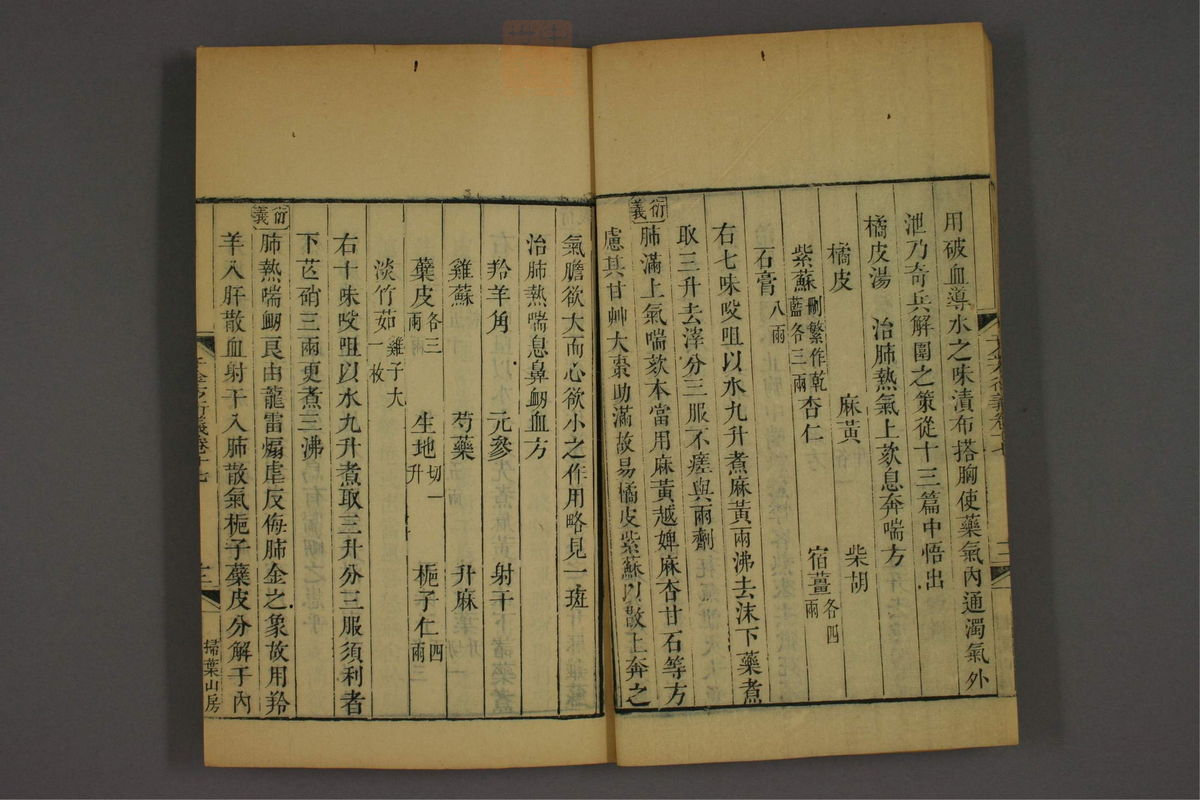 用破血導水之味漬布搭胸使藥氣內通濁氣外
泄乃奇兵解圍之策從十三篇中悟出
橘皮湯　治肺熱氣上欬息奔喘方
橘皮　麻黃　柴胡
紫蘇刪繁作乾藍各三兩　杏仁　宿薑各四兩
石膏八兩
右七味㕮咀以水九升煮麻黃兩沸去沫下藥煮
取三升去滓分三服不瘥與兩劑
衍義
肺滿上氣喘欬本當用麻黃越婢麻杏甘石等方
慮其甘艸大棗助滿故易橘皮紫蘇以散上奔之
氣膽欲大而心欲小之作用略見一斑
治肺熱喘息鼻衂血方
羚羊角　元參　射干
雞蘇　芍藥　升麻
蘗皮各三兩　生地切一升　梔子仁四兩
淡竹茹雞子大一枚
右十味㕮咀以水九升煮取三升分三服須利者
下芒硝三兩更煮三沸
衍義
肺熱喘衂良由龍雷煽虐反侮肺金之象故用羚
羊入肝散血射干入肺散氣梔子蘗皮分解于內
掃葉山房